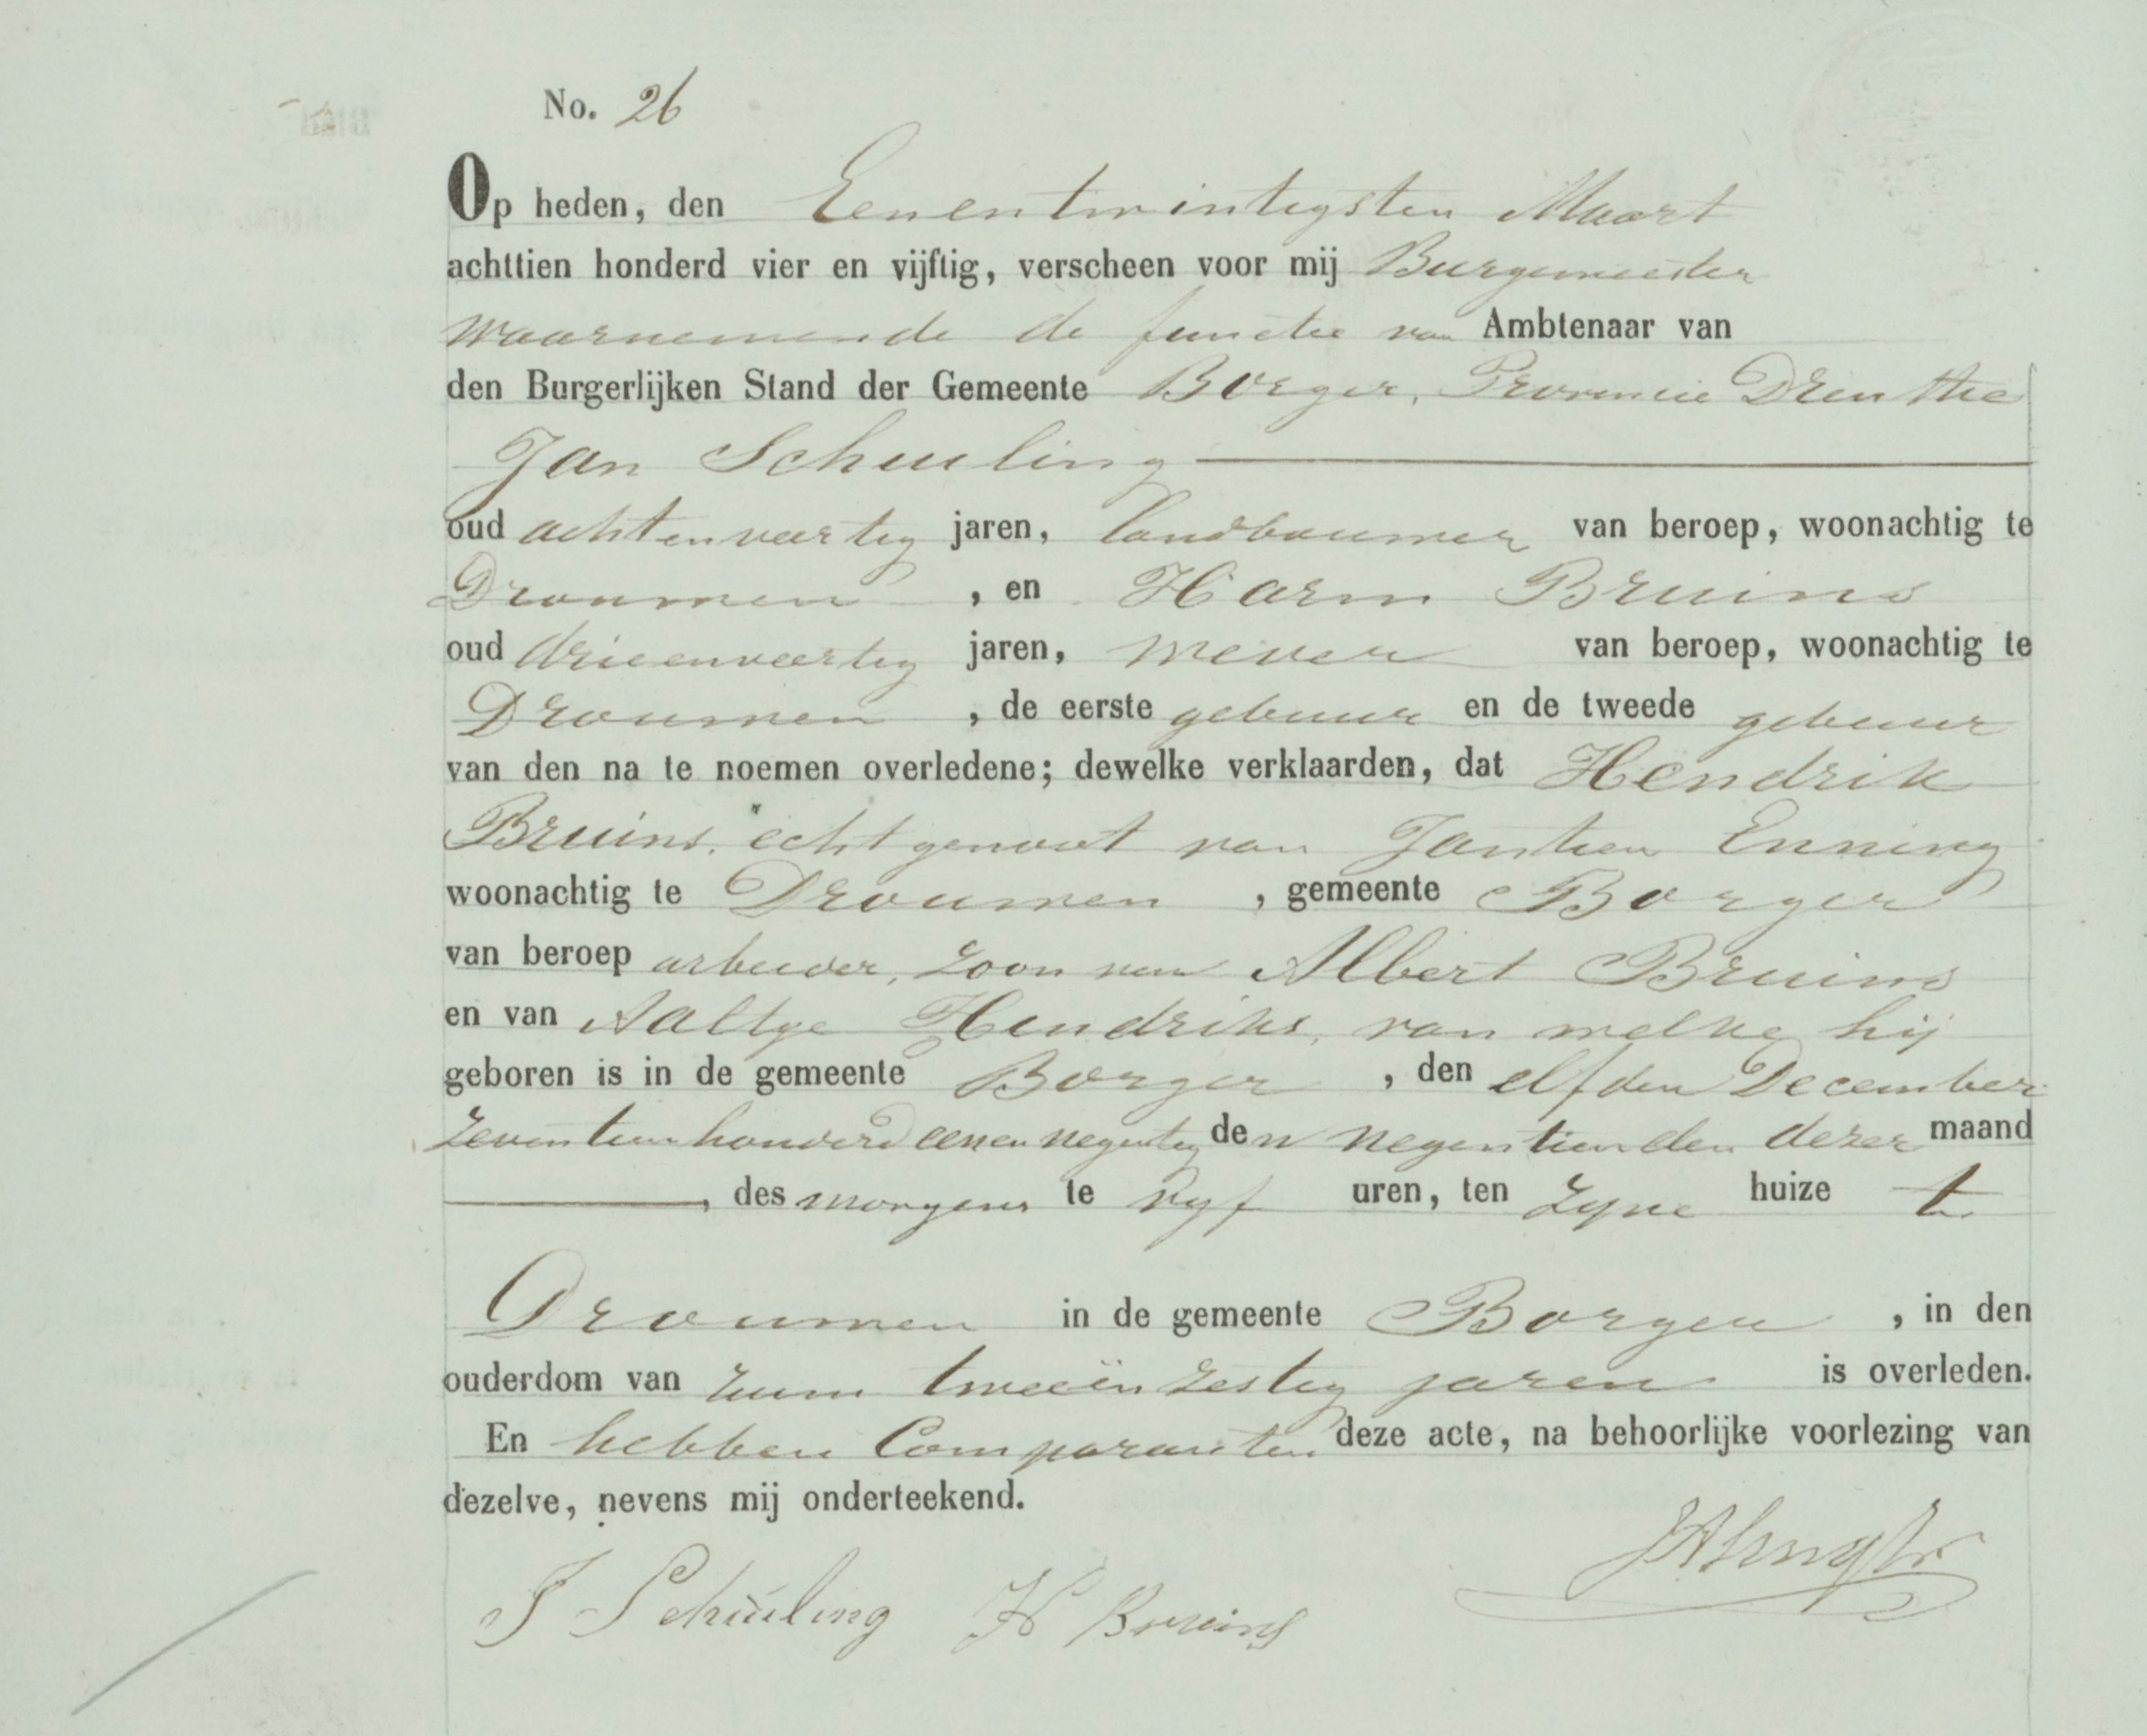 No. 26
Op heden, den Eenentwintigsten Maart
achttien honderd vier en vijftig, verscheen voor mij Burgemeester
waarnemende de functie van Ambtenaar van
den Burgerlijken Stand der Gemeente Borger, Provincie Drenthe
Jan Schuiling
oud achtenveertig jaren, landbouwer van beroep, woonachtig te
Drouwen, en Harm Bruins
oud drieenveertig jaren, wever van beroep, woonachtig te
Drouwen, de eerste gebuur en de tweede gebuur
van den na te noemen overledene; dewelke verklaarden, dat Hendrik
Bruins, echtgenoot van Jantien Enning
woonachtig te Drouwen, gemeente Borger
van beroep arbeider, zoon van Albert Bruins
en van Aaltje Hendriks, van welke hij
geboren is in de gemeente Borger, den elfden December
zeventienhonderd eenennegentig den negentienden dezer maand
, des morgens te vyf uren, ten zyne huize te
Drouwen in de gemeente Borger, in den
ouderdom van ruim tweeënzestig jaren is overleden.
En hebben Comparanten deze acte, na behoorlijke voorlezing van
dezelve, nevens mij onderteekend.
J Schuiling H Bruins